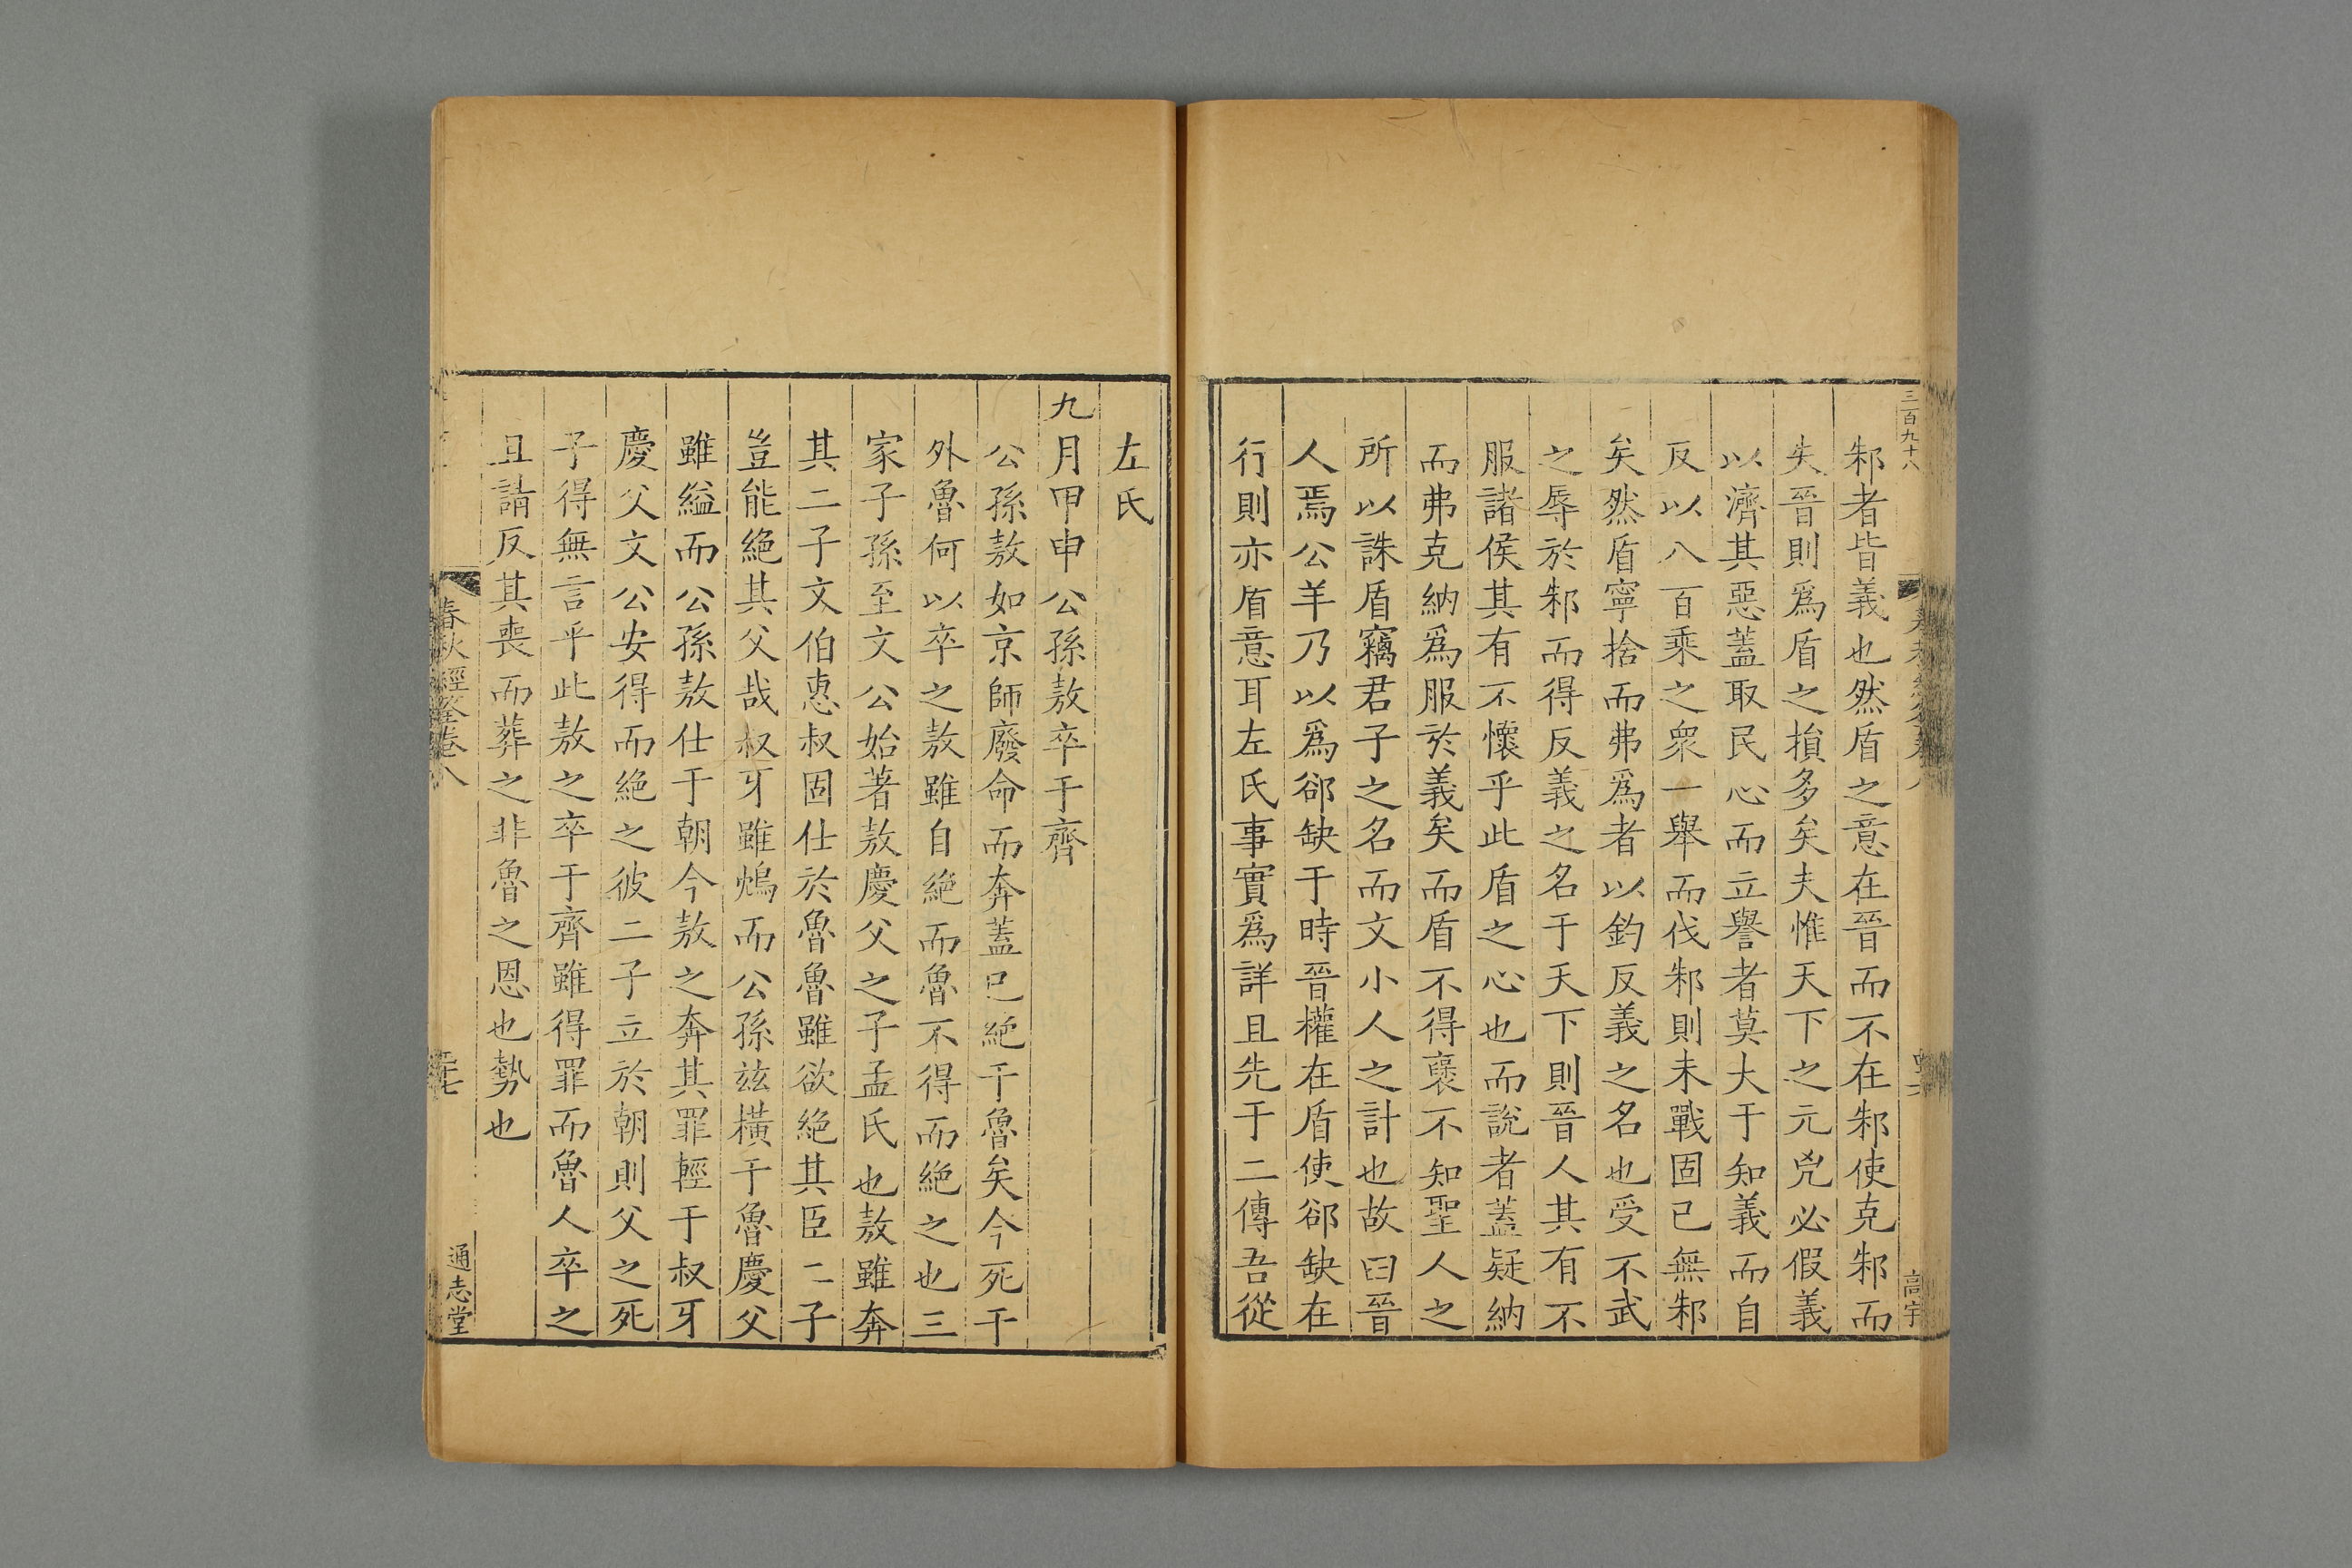 三百九十八
邾者皆義也然盾之意在晉而不在邾使克邾而
失晉則爲盾之損多矣夫惟天下之元兇必假義
以濟其惡蓋取民心而立譽者莫大于知義而自
反以八百乘之衆一舉而伐邾則未戰固已無邾
矣然盾寧捨而弗爲者以鈞反義之名也受不武
之辱於邾而得反義之名于天下則晉人其有不
服諸侯其有不懷乎此盾之心也而說者蓋疑納
而弗克納爲服於義矣而盾不得襃不知聖人之
所以誅盾竊君子之名而文小人之計也故曰晉
人焉公羊乃以爲郤缺于時晉權在盾使郤缺在
行則亦盾意耳左氏事實爲詳且先于二傳吾從
高宇
左氏
九月甲申公孫敖卒于齊
公孫敖如京師廢命而奔蓋已絶于魯矣今死于
外魯何以卒之敖雖自絶而魯不得而絶之也三
家子孫至文公始著敖慶父之子孟氏也敖雖奔
其二子文伯惠叔固仕於魯魯雖欲絶其臣二子
豈能絶其父哉叔牙雖鴆而公孫兹橫于魯慶父
雖縊而公孫敖仕于朝今敖之奔其罪輕于叔牙
慶父文公安得而絶之彼二子立於朝則父之死
子得無言乎此敖之卒于齊雖得罪而魯人卒之
且請反其喪而葬之非魯之恩也勢也
春秋經筌卷八
三十七
通志堂